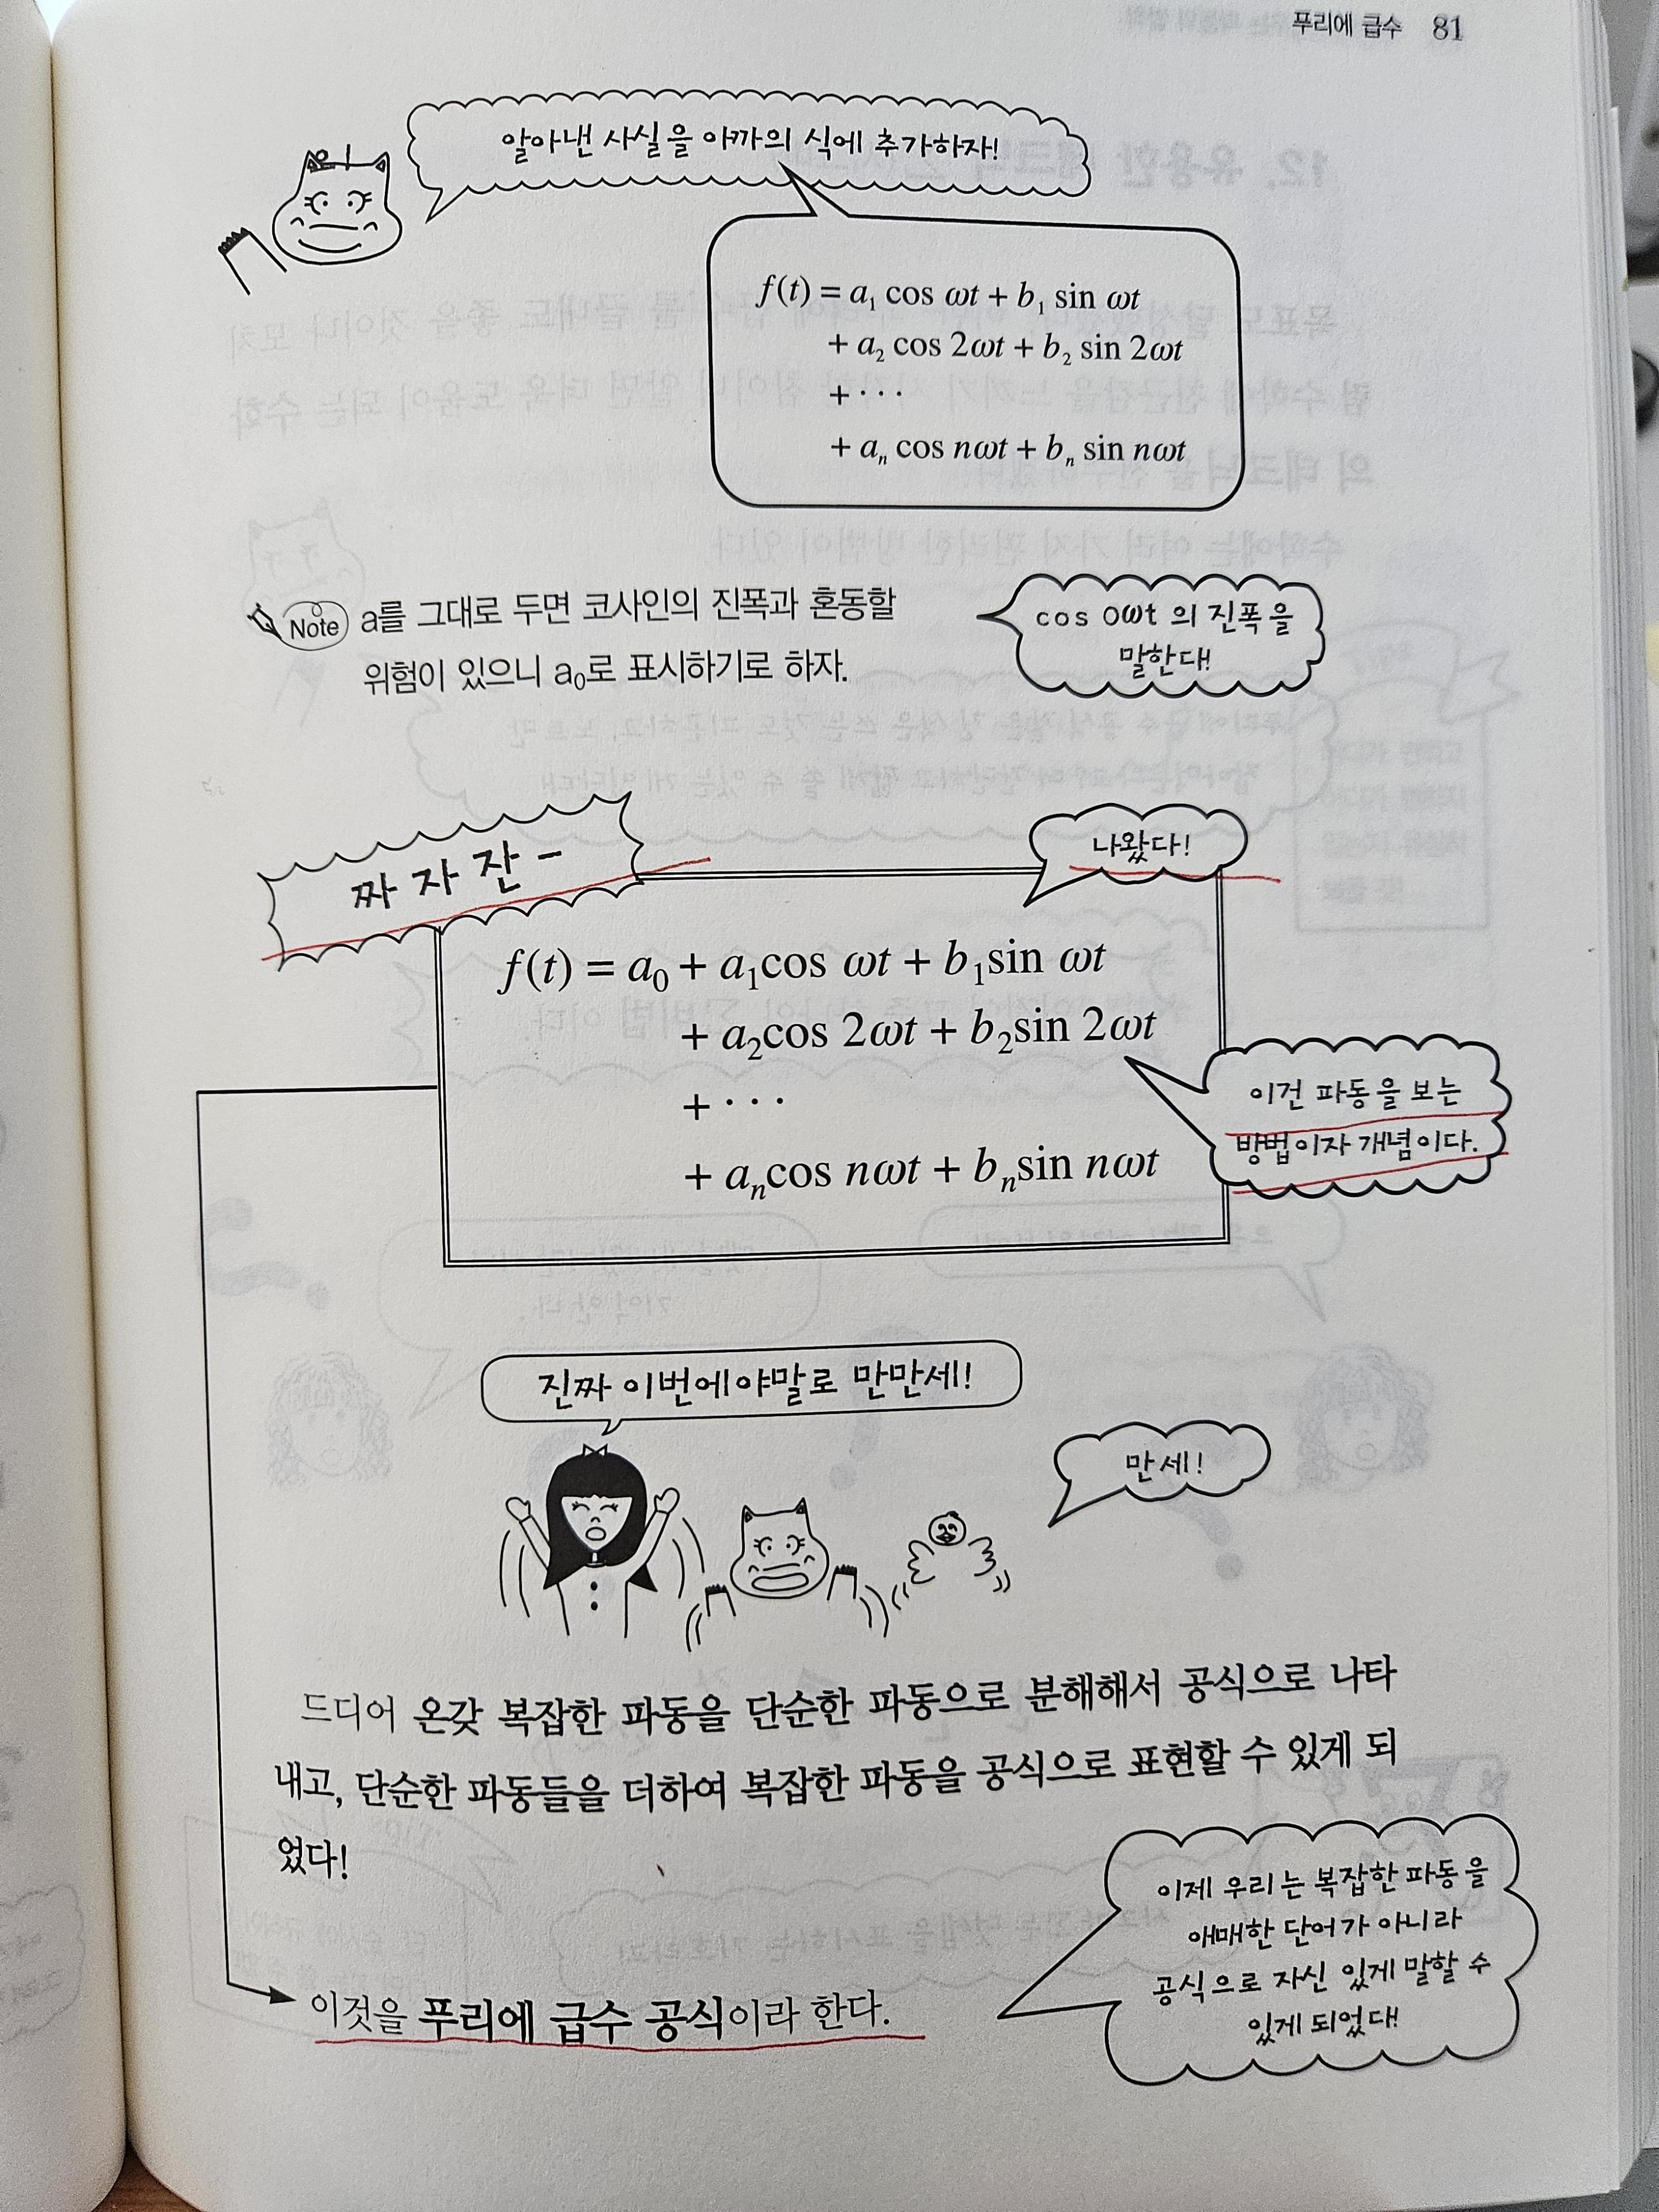 푸리에 급수 81
알아낸 사실을 아까의 식에 추가하자!
f(t) = a₁ cos ωt + b₁ sin ωt
+ a₂ cos 2ωt + b₂ sin 2ωt
+ · · ·
+ aₙ cos nωt + bₙ sin nωt
Note a를 그대로 두면 코사인의 진폭과 혼동할
위험이 있으니 a₀로 표시하기로 하자.
cos 0ωt 의 진폭을
말한다!
짜 자 잔 –
나왔다!
f(t) = a₀ + a₁cos ωt + b₁sin ωt
+ a₂cos 2ωt + b₂sin 2ωt
+ · · ·
+ aₙcos nωt + bₙsin nωt
이건 파동을 보는
방법이자 개념이다.
진짜 이번에야말로 만만세!
만세!
드디어 온갖 복잡한 파동을 단순한 파동으로 분해해서 공식으로 나타
내고, 단순한 파동들을 더하여 복잡한 파동을 공식으로 표현할 수 있게 되
었다!
이제 우리는 복잡한 파동을
애매한 단어가 아니라
공식으로 자신 있게 말할 수
있게 되었다!
이것을 푸리에 급수 공식이라 한다.